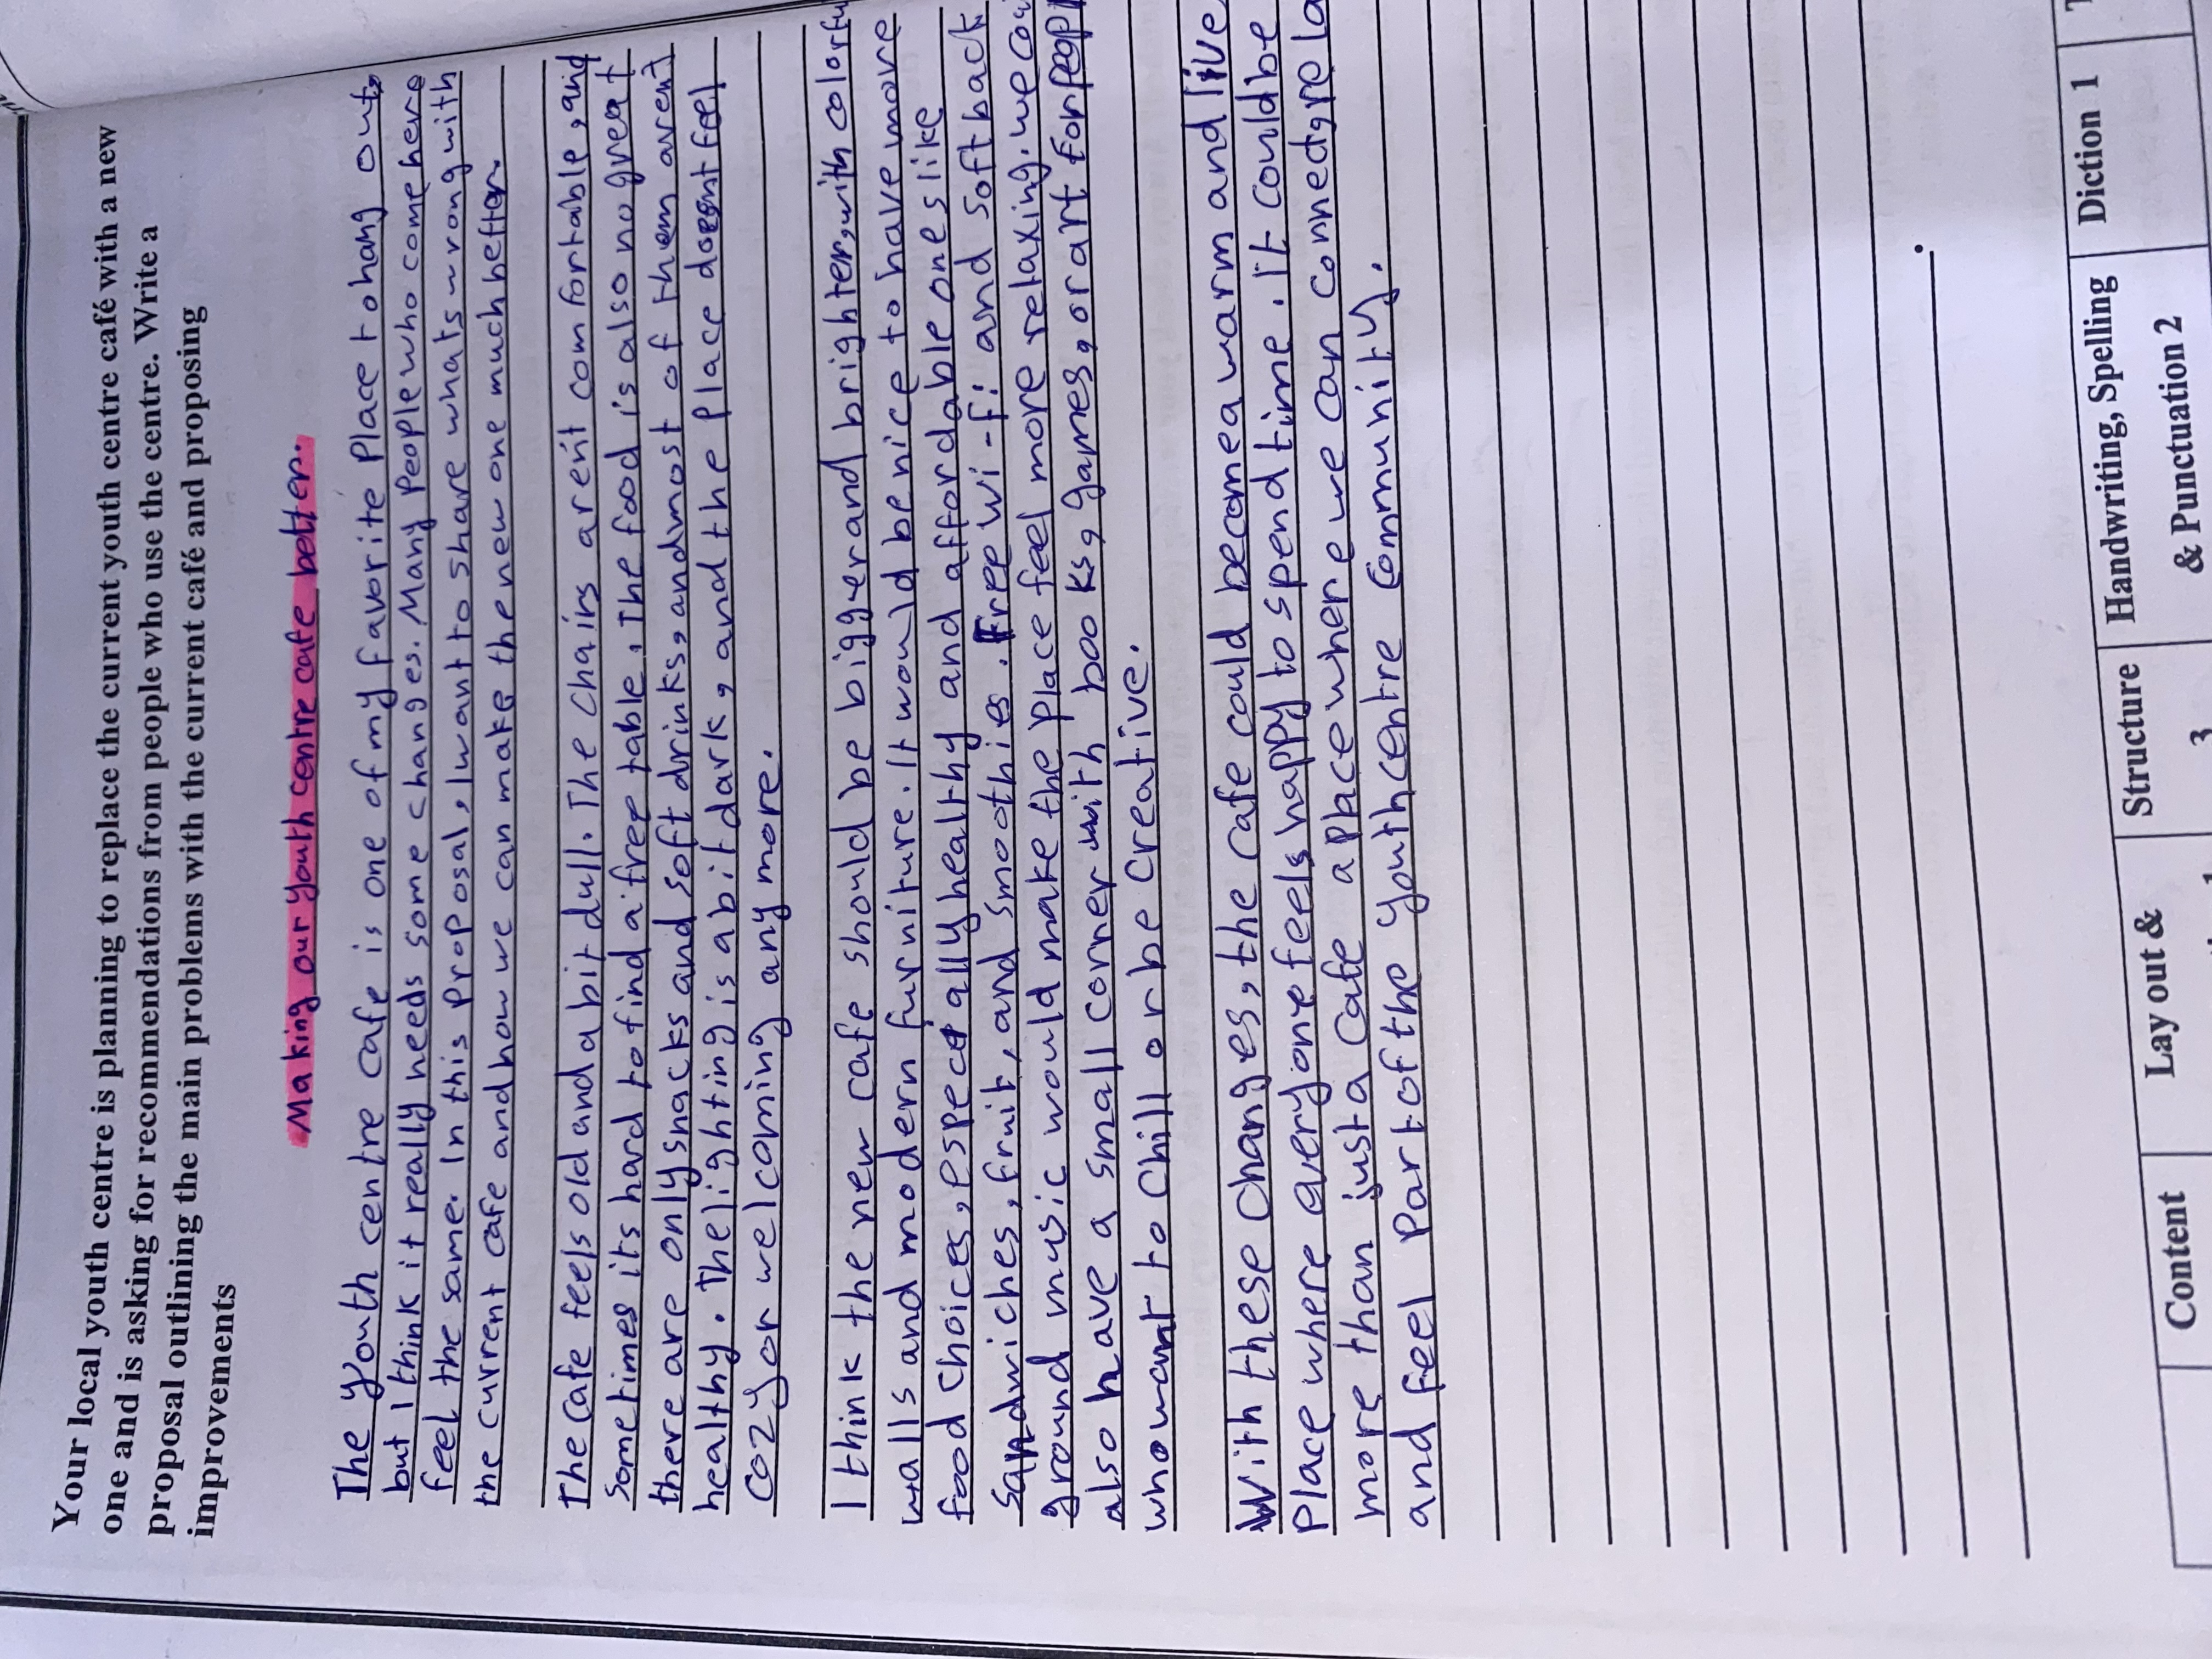 Your local youth centre is planning to replace the current youth centre café with a new
one and is asking for recommendations from people who use the centre. Write a
proposal outlining the main problems with the current café and proposing
improvements
Making our youth centre cafe better..
The youth centre cafe is one of my favorite Place to hang out,
but I think it really needs some changes. Many People who come here
feel the same. In this Proposal, I want to share whats wrong with
the current cafe and how we can make the new one much better.
The cafe feels old and a bit dull. The chairs arent comfortable, and
sometimes its hard to find a free table. The food is also no great
there are only snacks and soft drinks, and most of them arent
healthy. The lighting is a bit dark, and the place doesnt feel
cozy or welcoming any more.
I think the new cafe should be bigger and brighter, with
walls and modern furniture. It would be nice to have more
food choices, especially healthy and affordable ones like
Sandwiches, fruit, and smoothies. Free wi-fi and soft back
ground music would make the place feel more relaxing. we
also have a small corner with books, games, or art for
who want to chill or be creative.
With these changes, the cafe could become a warm and
Place where everyone feels happy to spend time. It could be
more than just a cafe a place where we can
and feel Part of the youth centre community.
Content
Lay out &
Structure
3
Handwriting, Spelling
& Punctuation 2
Diction 1